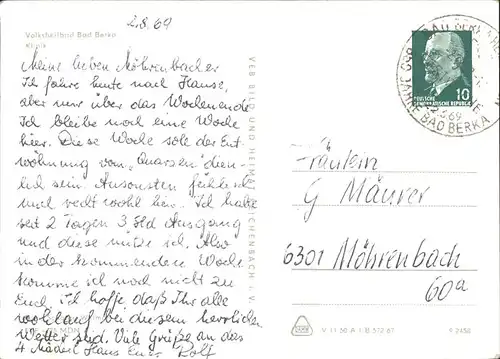 2.8.69
Volksheilbad Bad Berka
Klinik
Meine lieben Möhrenbacher
Ich fahre heute nach Hause,
aber nur über das Wochenende
Ich bleibe noch eine Woche
hier. Diese Woche soll der Ent
wöhnung von „Quarzen" dien-
lich sein. Ansonsten fühle ich
mich recht wohl hier. Ich habe
seit 2 Tagen 3 Std Ausgang
und diese nutze ich. Also
in der kommenden Woche
komme ich noch nicht zu
Euch. Ich hoffe daß Ihr alle
wohlauf bei diesem herrlichen
Wetter sind. Viele Grüße an das
4 Mäderl Haus Euer Rolf
VEB BILD UND HEIMAT REICHENBACH i. V.
10
DEUTSCHE
DEMOKRATISCHE REPUBLIK
BAD BERKA
Fräulein
G Mäurer
6301 Möhrenbach
60a
V 11 50 A 1 B 372 67
9 2450